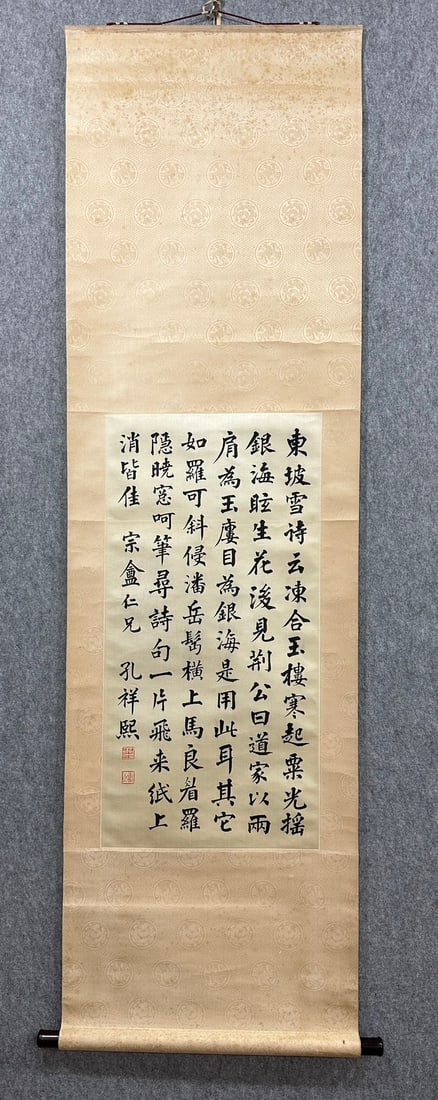 東坡雪诗云凍合玉樓寒起粟光搖
銀海眩生花後見荆公曰道家以兩
肩為玉廔目為銀海是用此耳其它
如羅可斜侵潘岳髩橫上馬良眉羅
隱曉窓呵筆尋詩句一片飛来紙上
消皆佳 宗盦仁兄 孔祥熙